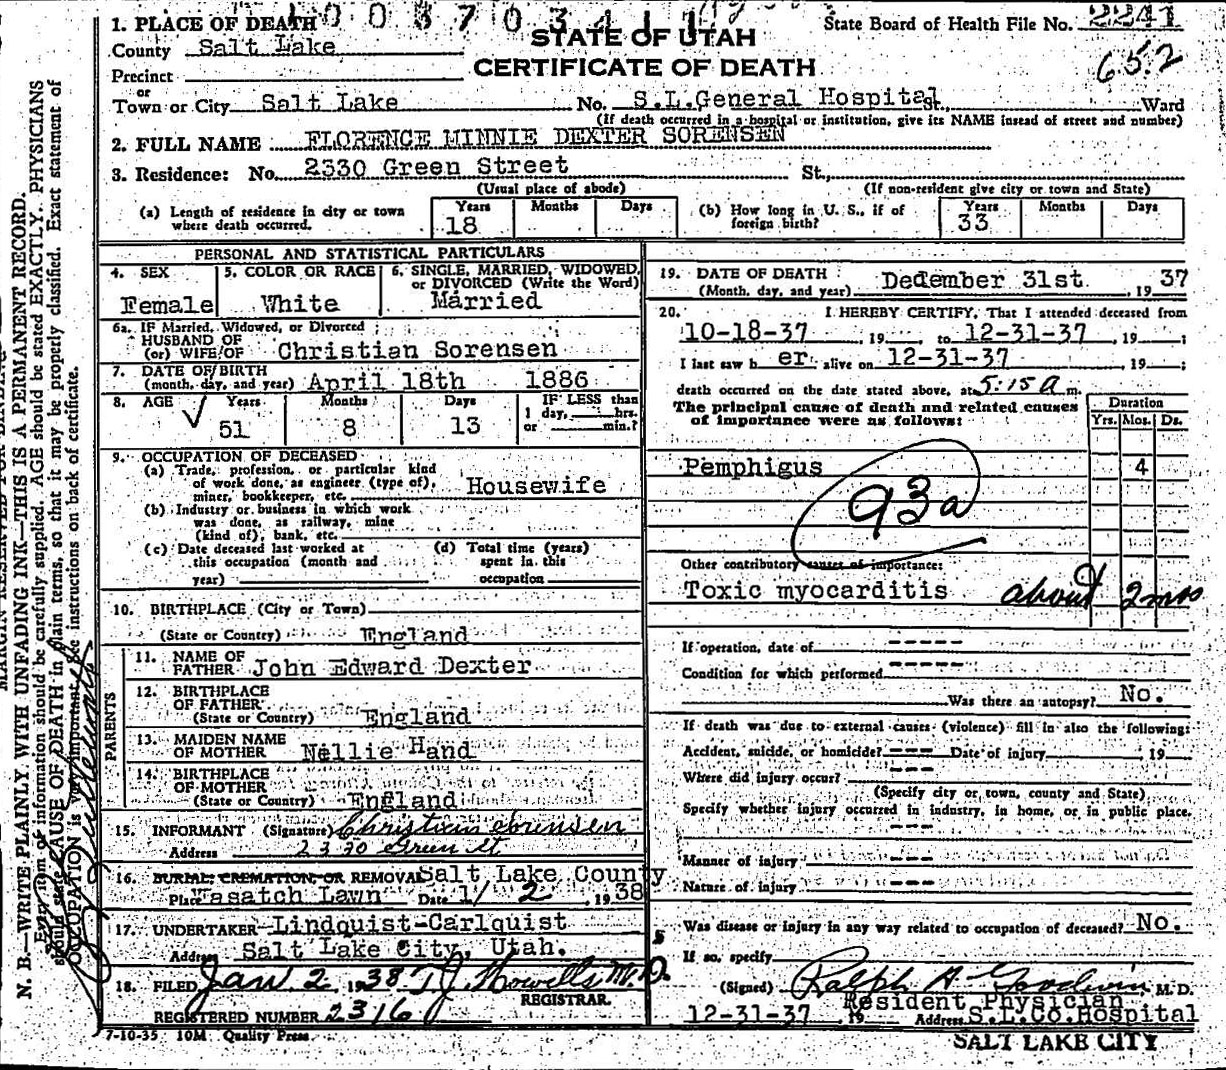 1. PLACE OF DEATH 003703411
State Board of Health File No. 2241
County Salt Lake
STATE OF UTAH
652
CERTIFICATE OF DEATH
Precinct
or
Town or City Salt Lake No. S.L.General Hospital St., Ward
(If death occurred in a hospital or institution, give its NAME insead of street and number)
2. FULL NAME FLORENCE MINNIE DEXTER SORENSEN
3. Residence: No. 2330 Green Street St.,
(Usual place of abode) (If non-resident give city or town and State)
(a) Length of residence in city or town where death occurred. Years 18 Months Days
(b) How long in U. S., if of foreign birth? Years 33 Months Days
PERSONAL AND STATISTICAL PARTICULARS
4. SEX Female
5. COLOR OR RACE White
6. SINGLE, MARRIED, WIDOWED, or DIVORCED (Write the Word) Married
6a. IF Married, Widowed, or Divorced
HUSBAND OF
(or) WIFE OF Christian Sorensen
7. DATE OF BIRTH
(month, day, and year) April 18th 1886
8. AGE Years 51 Months 8 Days 13 IF LESS than
1 day, hrs.
or min.?
9. OCCUPATION OF DECEASED
(a) Trade, profession, or particular kind
of work done, as engineer (type of),
miner, bookkeeper, etc. Housewife
(b) Industry or business in which work
was done, as railway, mine
(kind of), bank, etc.
(c) Date deceased last worked at
this occupation (month and
year)
(d) Total time (years)
spent in this
occupation
10. BIRTHPLACE (City or Town)
(State or Country) England
PARENTS
11. NAME OF
FATHER John Edward Dexter
12. BIRTHPLACE
OF FATHER
(State or Country) England
13. MAIDEN NAME
OF MOTHER Nellie Hand
14. BIRTHPLACE
OF MOTHER
(State or Country) England
15. INFORMANT (Signature) Christian Sorensen
Address 2330 Green St
16. BURIAL, CREMATION, OR REMOVAL Salt Lake County
Place Wasatch Lawn Date 1/2, 1938
17. UNDERTAKER Lindquist-Carlquist
Address Salt Lake City, Utah.
18. FILED Jan 2 1938 T.J. Howells M.D.
REGISTRAR.
REGISTERED NUMBER 2316
7-10-35 10M Quality Press
19. DATE OF DEATH
(Month, day, and year) December 31st, 1937
20. I HEREBY CERTIFY, That I attended deceased from
10-18-37, 19 to 12-31-37, 19 ;
I last saw her alive on 12-31-37, 19 ;
death occurred on the date stated above, at 5:15 A m.
The principal cause of death and related causes
of importance were as follows:
Duration
Yrs. Mos. Ds.
Pemphigus 4
93a
Other contributory causes of importance:
Toxic myocarditis about 2 mos
If operation, date of -----
Condition for which performed -----
Was there an autopsy? No.
If death was due to external causes (violence) fill in also the following:
Accident, suicide, or homicide? --- Date of injury , 19
Where did injury occur? ---
(Specify city or town, county and State)
Specify whether injury occurred in industry, in home, or in public place.
---
Manner of injury ---
Nature of injury ---
Was disease or injury in any way related to occupation of deceased? No.
If so, specify
(Signed) Ralph A Goodwin M. D.
Resident Physician
12-31-37, 19 Address S.L.Co.Hospital
SALT LAKE CITY
N. B.—WRITE PLAINLY WITH UNFADING INK—THIS IS A PERMANENT RECORD.
Every item of information should be carefully supplied. AGE should be stated EXACTLY. PHYSICIANS
should state CAUSE OF DEATH in plain terms, so that it may be properly classified. Exact statement of
OCCUPATION is very important. See instructions on back of certificate.